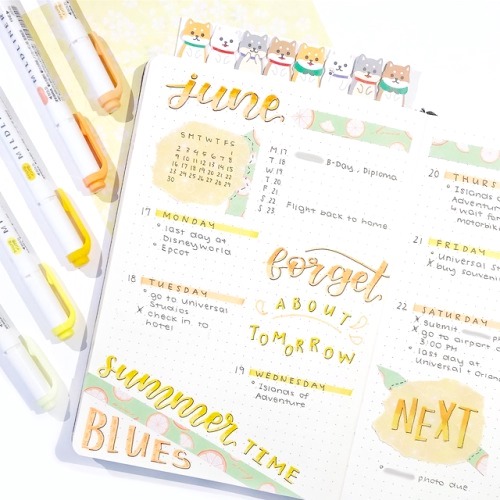 MILDLINER
june
SMTWTFS
1
2 3 4 5 6 7 8
9 10 11 12 13 14 15
16 17 18 19 20 21 22
23 24 25 26 27 28 29
30
M 17
T. 18
W 19
T. 20
F. 21
S. 22
S. 23
B-Day, Diploma
Flight back to home
17 MONDAY
° last day at
Disneyworld
° Epcot
18 TUESDAY
° go to Universal
Studios
x check in to
hotel
forget
ABOUT
TOMORROW
19 WEDNESDAY
° Islands of
Adventure
summer TIME
BLUES
20 THURS
° Islands of
Adventu
wait for
motorbik
21 FRIDAY
° Universal St
x buy souveni
22 SATURDAY
x Submit
x go to airport
3:00 PM
° last day at
Universal + Orla
NEXT
photo due